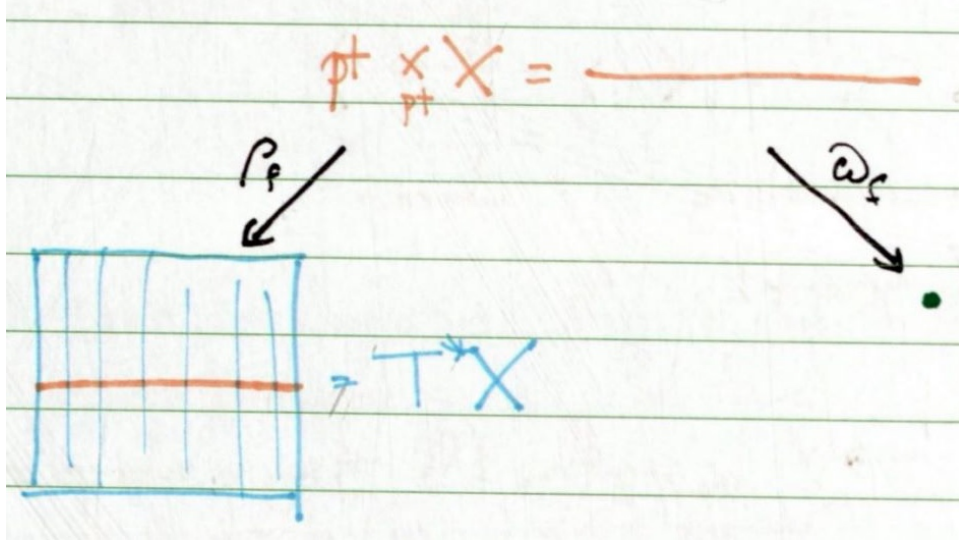 pt ×_pt X =
ρ_f ω_f
= T*X